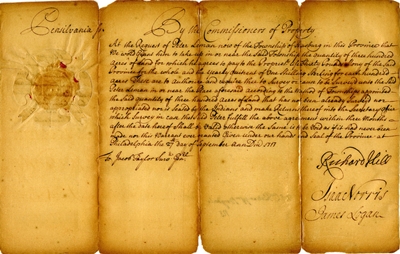 Pensilvania ss
By the Commissioners of Property
At the Request of Peter Leman now of the Township of in this Province that
We would grant him to take up in or near the said Township the quantity of three hundred
acres of Land for which he agrees to pay to the Proprietor's use thirty Pounds money of the said
Province for the whole and the yearly Quitrent of One Shilling sterling for each hundred
acres These are to authorize and require thee to Survey or cause to be Surveyed unto the said
Peter Leman in or near the Place aforesaid according to the method of Townships appointed
the said Quantity of three hundred Acres of Land that has not been already Surveyed nor
appropriated nor is Seated by the Indians and make Returns thereof into the Secretary's Office
which Survey in case the said Peter fulfill the above agreement within three Months
after the date hereof Shall be valid otherwise the Same is to be void as if it had never been
made nor this Warrant ever granted Given under our hands and Seal of the Province at
Philadelphia the 27 day of September Ann Dni 1717
To Jacob Taylor Survr Genll
Richard Hill
Isaac Norris
James Logan